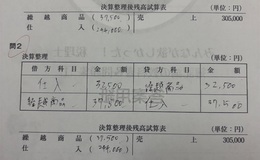 決算整理後残高試算表 (単位:円)
繰越商品 (37,500) 売上 305,000
仕入
問2
決算整理 (単位:円)
借方科目 金額 貸方科目 金額
仕入 繰越商品 32,500
繰越商品 37,500 仕入 37,500
決算整理後残高試算表 (単位:円)
繰越商品 (37,500) 売上 305,000
仕入